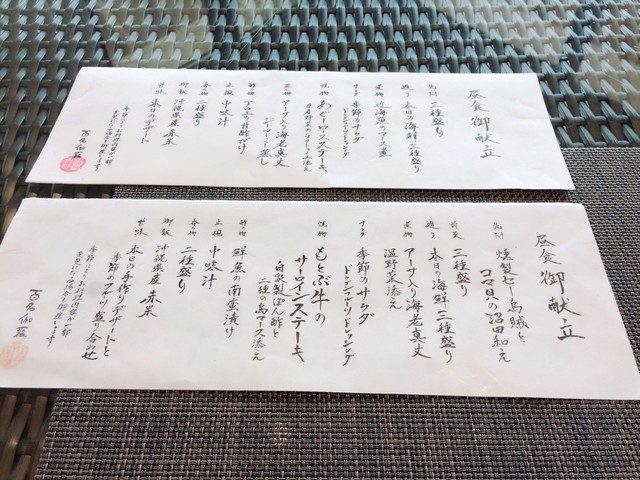 昼食 御献立
先附 三種盛り
造り 本日の海鮮 三種盛り
煮物 近海魚のマース煮
サラダ 季節のサラダ
ドラゴンフルーツドレッシング
焼物 あぐーロインステーキ
蒸し物 アーサ入り海老真丈
酢物
止椀 中味汁
香の物 二種盛り
御飯 沖縄県産 赤米
甘味 本日のデザート
百名伽藍
昼食 御献立
先附 燻製セー烏賊と
コマ貝の沼田和え
前菜 三種盛り
造り 本日の海鮮 三種盛り
煮物 アーサ入り海老真丈
温野菜添え
サラダ 季節のサラダ
ドラゴンフルーツドレッシング
焼物 もとぶ牛の
サーロインステーキ
自家製ぽん酢と
二種の島マース添え
酢の物 鮮魚の南蛮漬け
止椀 中味汁
香の物 二種盛り
御飯 沖縄県産 赤米
甘味 本日の手作りデザートと
季節のフルーツ盛り合わせ
百名伽藍